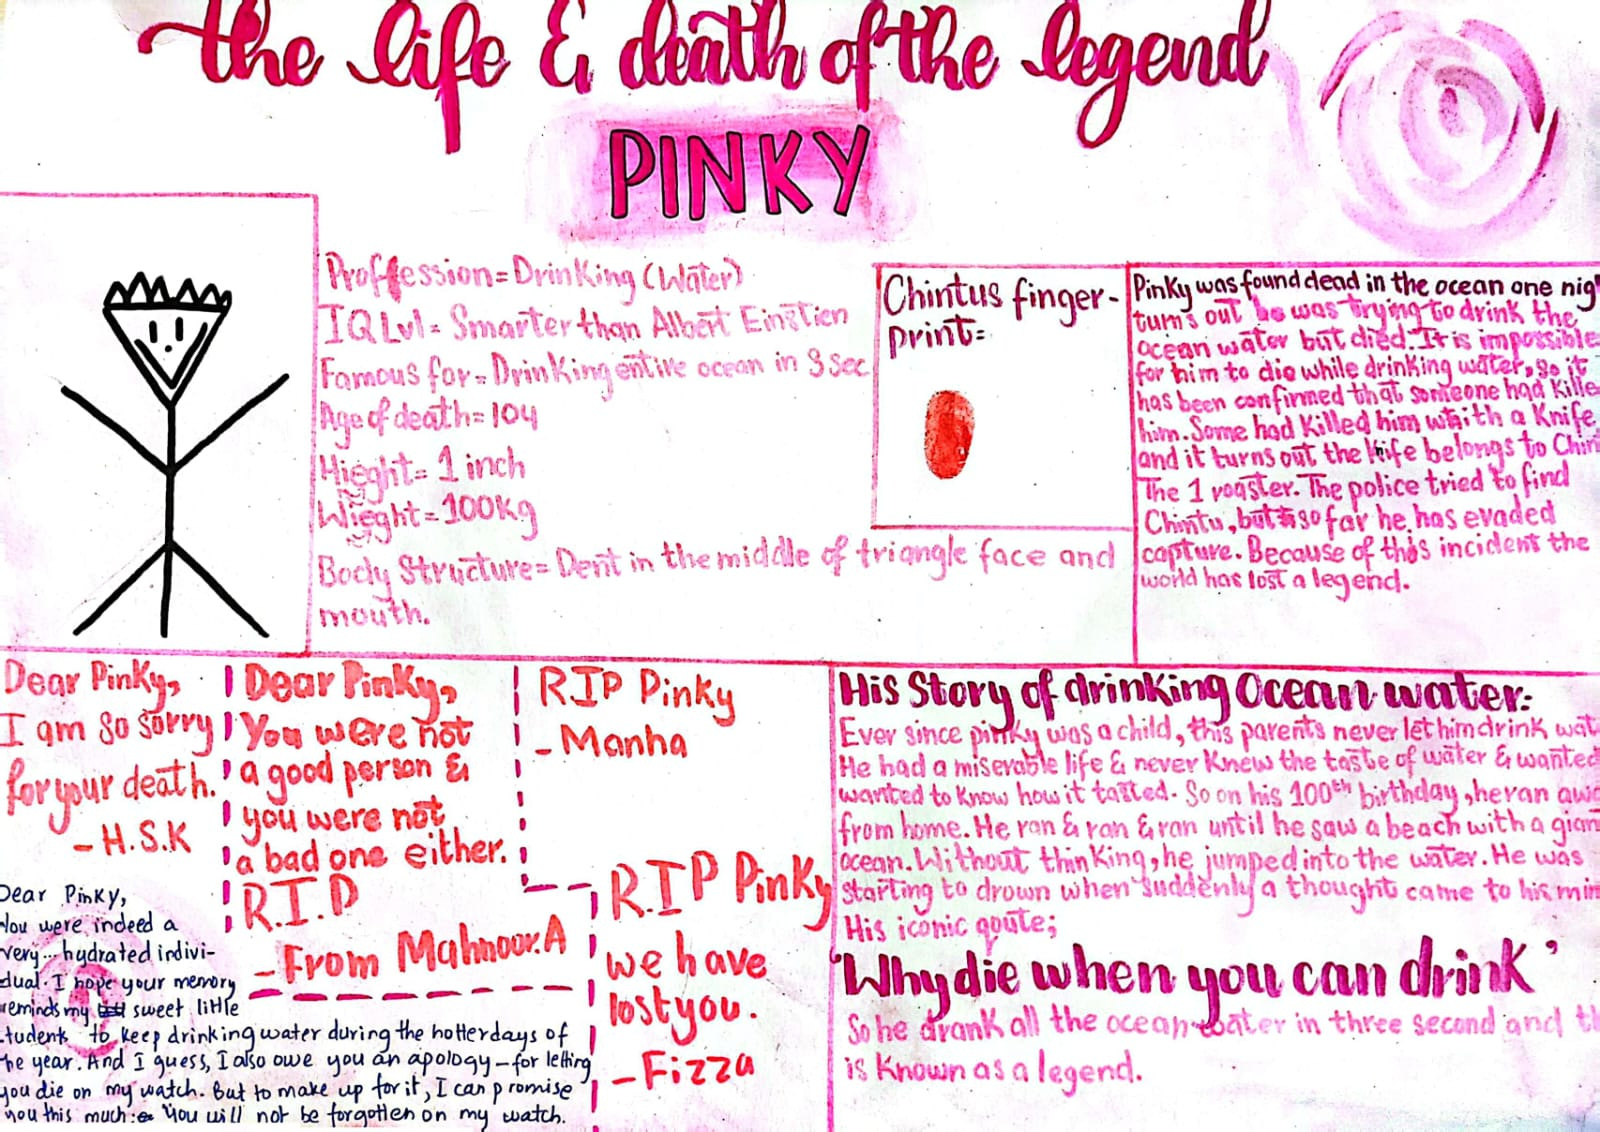 the life & death of the legend
PINKY
Proffession = Drinking (Water)
IQ Lvl = Smarter than Albert Einstien
Famous for = Drinking entire ocean in 3 sec
Age of death = 104
Hieght = 1 inch
Wieght = 100kg
Body Structure = Dent in the middle of triangle face and
mouth.
Chintus finger-
print =
Pinky was found dead in the ocean one nig
turns out he was trying to drink the
ocean water but died. It is impossible
for him to die while drinking water, so it
has been confirmed that someone had kille
him. Some had killed him with a Knife,
and it turns out the knife belongs to Chin
The 1 roaster. The police tried to find
Chintu, but so far he has evaded
capture. Because of this incident the
world has lost a legend.
Dear Pinky,
I am so sorry
for your death.
- H.S.K
Dear Pinky,
You were not
a good person &
you were not
a bad one either.
R.I.P
- From Mahnoor.A
RIP Pinky
- Manha
R.I.P Pinky
we have
lost you.
- Fizza
Dear Pinky,
You were indeed a
very... hydrated indivi-
dual. I hope your memory
reminds my sweet little
students to keep drinking water during the hotter days of
he year. And I guess, I also owe you an apology - for letting
you die on my watch. But to make up for it, I can promise
you this much: You will not be forgotten on my watch.
His Story of drinking Ocean water:
Ever since pinky was a child, this parents never let him drink wat
He had a miserable life & never knew the taste of water & wanted
wanted to know how it tasted. So on his 100th birthday, he ran awa
from home. He ran & ran & ran until he saw a beach with a gian
ocean. Without thinking, he jumped into the water. He was
starting to drown when suddenly a thought came to his min
His iconic qoute;
'Why die when you can drink'
So he drank all the ocean water in three second and th
is known as a legend.